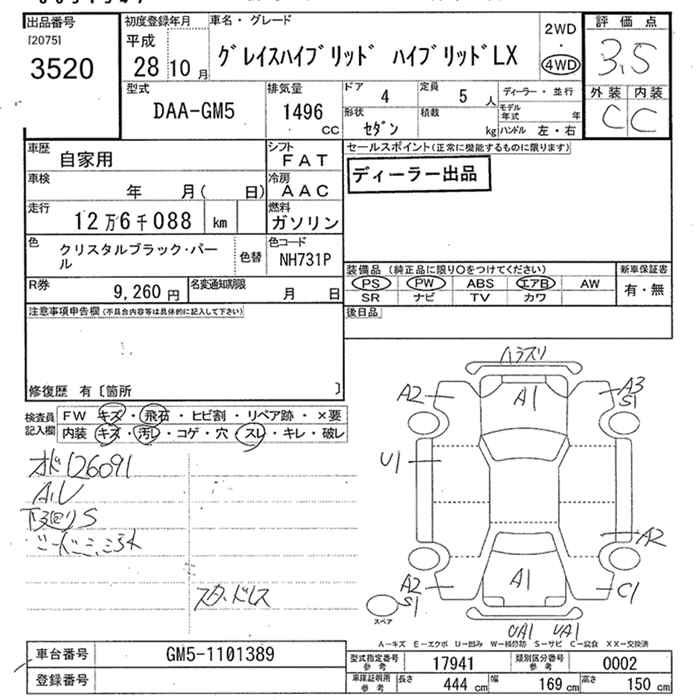 出品番号
[2075]
3520
初度登録年月
平成
28 10 月
車名・グレード
グレイスハイブリッド ハイブリッドLX
2WD
・
4WD
評価点
3.5
外装 内装
C C
型式
DAA-GM5
排気量
1496
CC
ドア
4
定員
5 人
形状
セダン
積載
kg
ディーラー・並行
モデル年式 年
ハンドル 左・右
車歴
自家用
シフト
FAT
車検
年 月( 日)
冷房
AAC
走行
12万6千088 km
燃料
ガソリン
色
クリスタルブラック・パール
色替
色コード
NH731P
R券
9,260 円
名変通知期限
月 日
セールスポイント(正常に機能するものに限ります)
ディーラー出品
装備品 (純正品に限り○をつけてください)
PS PW ABS エアB AW
SR ナビ TV カワ
新車保証書
有・無
後日品
注意事項申告欄(不具合内容等は具体的に記入して下さい)
修復歴 有〔箇所 〕
検査員記入欄
FW キズ・飛石・ヒビ割・リペア跡・×要
内装 キズ・汚レ・コゲ・穴・スレ・キレ・破レ
オド126091
A,U
下回りS
スタッドレス
ハラスリ
A2
A1
A3
S1
U1
A2
A2
S1
A1
C1
UA1 UA1
スペア
A−キズ E−エクボ U−凹み W−補修跡 S−サビ C−腐食 XX−交換済
車台番号
GM5-1101389
登録番号
型式指定番号
参考
17941
類別区分番号
参考
0002
車検証明用
参考
長さ
444 cm
幅
169 cm
高さ
150 cm